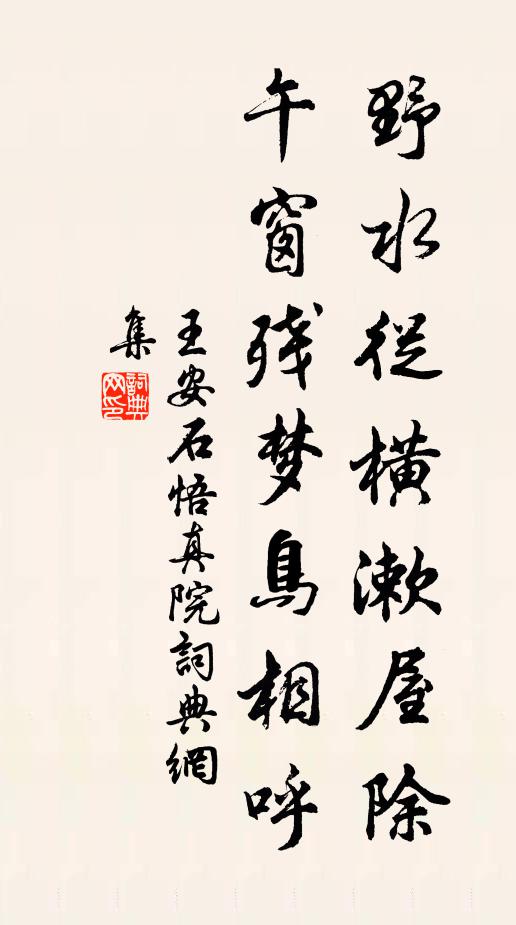 野水從橫漱屋除
午窗残梦鳥相呼
王安石悟真院詞典網
集
詞典
网印